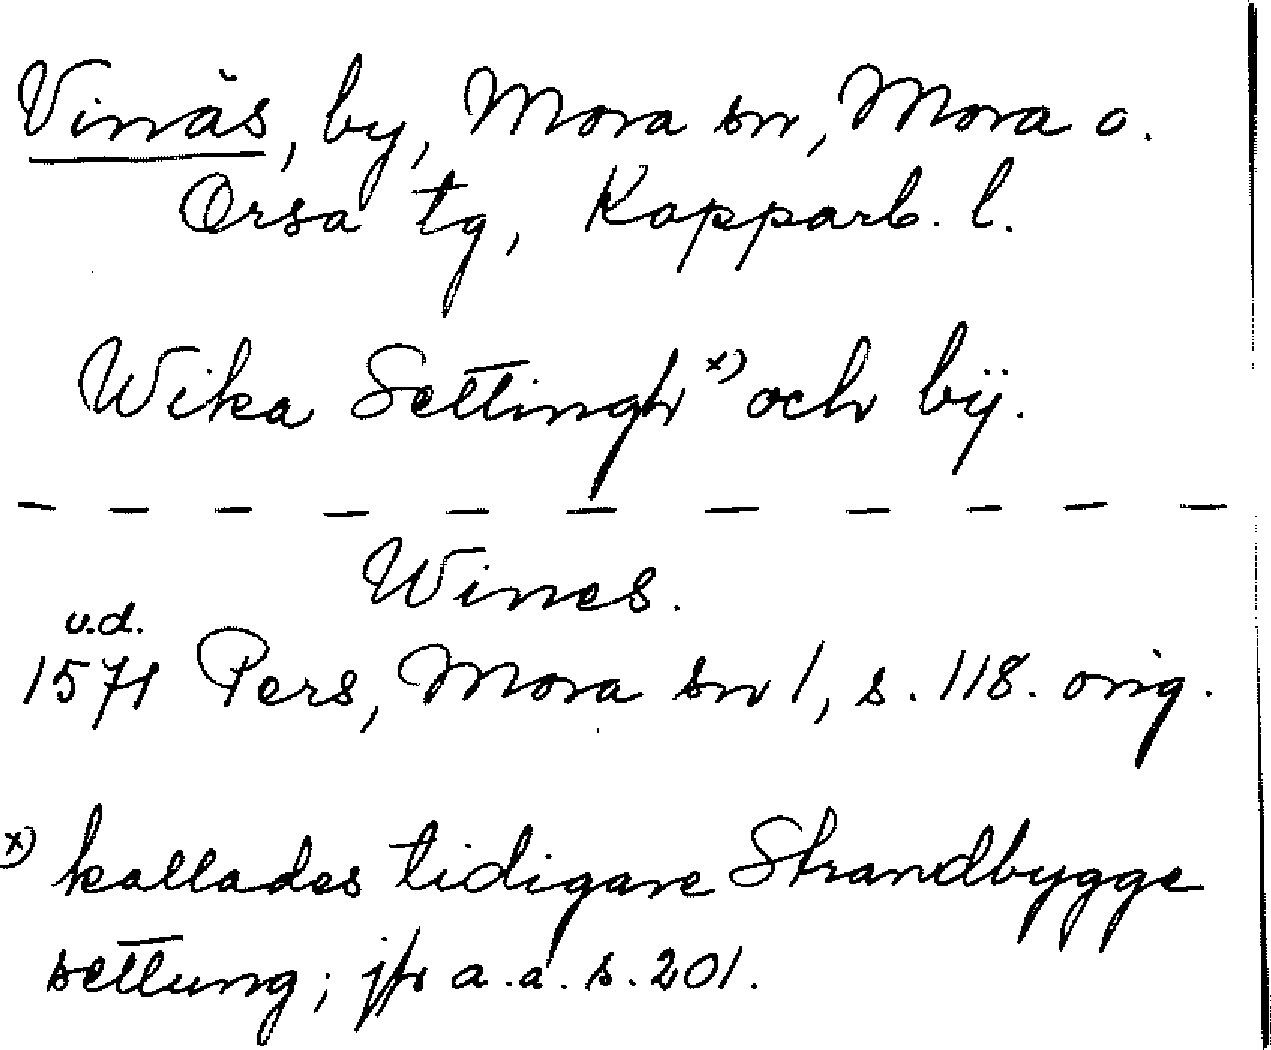 Vinäs, by, Mora sn, Mora o.
Orsa tg, Kopparb. l.
Wika Settingh x) och bÿ.
— — — — — — — — — — —
Wines.
u.d.
1571 Pers, Mora sn 1, s. 118. orig.
x) kallades tidigare Strandbygge
settung; jfr a.a. s. 201.